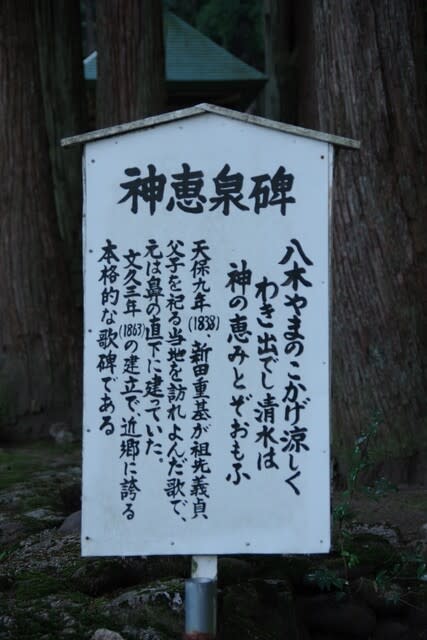 神恵泉碑
八木やまのこかげ涼しく
わき出でし清水は
神の恵みとぞおもふ
天保九年(1838)、新田重基が祖先義貞
父子を祀る当地を訪れよんだ歌で、
元は鼻の直下に建っていた。
文久三年(1863)の建立で近郷に誇る
本格的な歌碑である